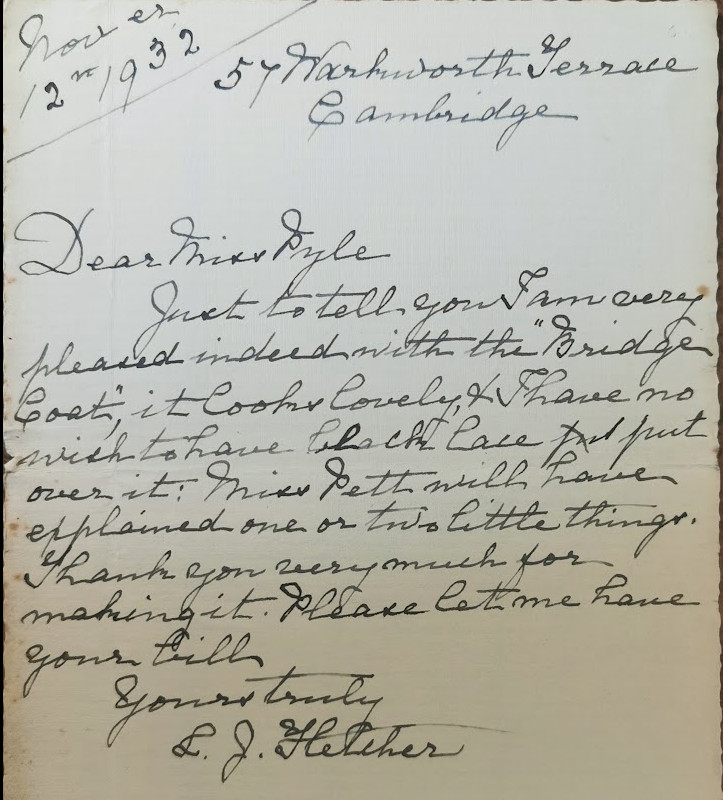 Nov er
12th 1932
57 Warkworth Terrace
Cambridge
Dear Miss Pyle
Just to tell you I am very
pleased indeed with the "Bridge
Coat", it looks lovely, & I have no
wish to have black lace put put
over it: Miss Pett will have
explained one or two little things.
Thank you very much for
making it. Please let me have
your bill
Yours truly
L. J. Fletcher